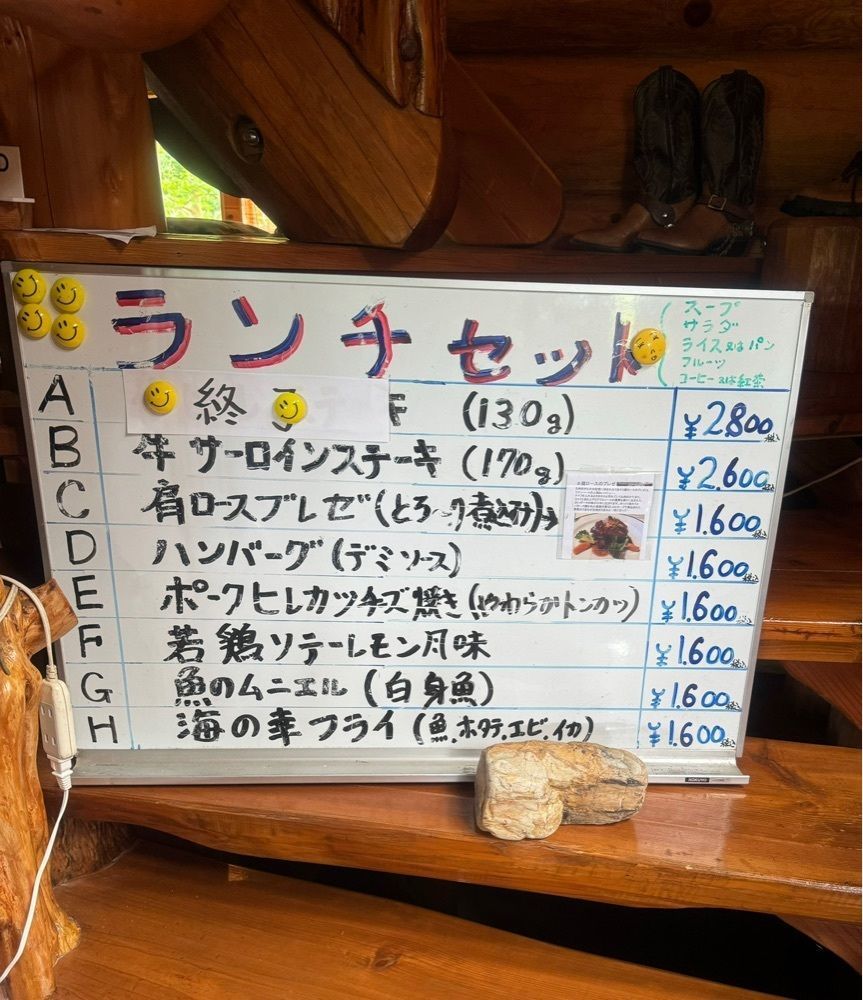 ランチセット
スープ
サラダ
ライス又はパン
フルーツ
コーヒー又は紅茶
A 終了 キ (130g) ¥2.800税込
B 牛サーロインステーキ (170g) ¥2.600税込
C 肩ロースブレゼ(とろ〜り煮込み) ¥1.600税込
D ハンバーグ(デミソース) ¥1.600税込
E ポークヒレカツチーズ焼き(やわらかトンカツ) ¥1.600税込
F 若鶏ソテーレモン風味 ¥1.600税込
G 魚のムニエル(白身魚) ¥1.600税込
H 海の幸フライ(魚.ホタテ.エビ.イカ) ¥1.600税込
KOKUYO